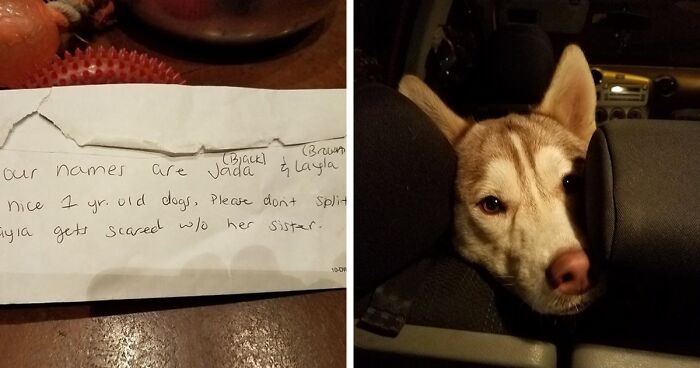 (Black) (Brown)
our names are Jada & Layla
nice 1 yr. old dogs, Please dont split
ayla gets scared w/o her sister.